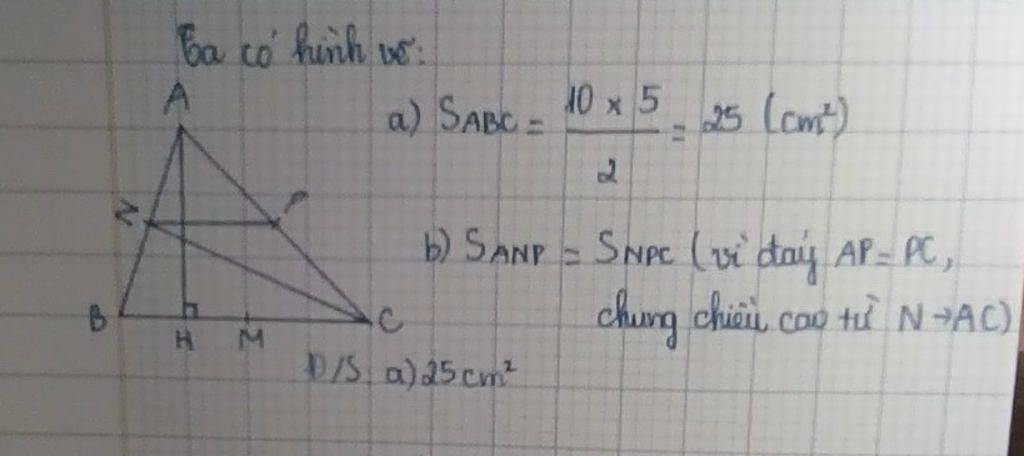 Ta có hình vẽ:
A
a) SABC = 10 x 5 / 2 = 25 (cm²)
N P
b) SANP = SNPC (vì đáy AP = PC,
chung chiều cao từ N→AC)
B H M C
Đ/S a) 25cm²